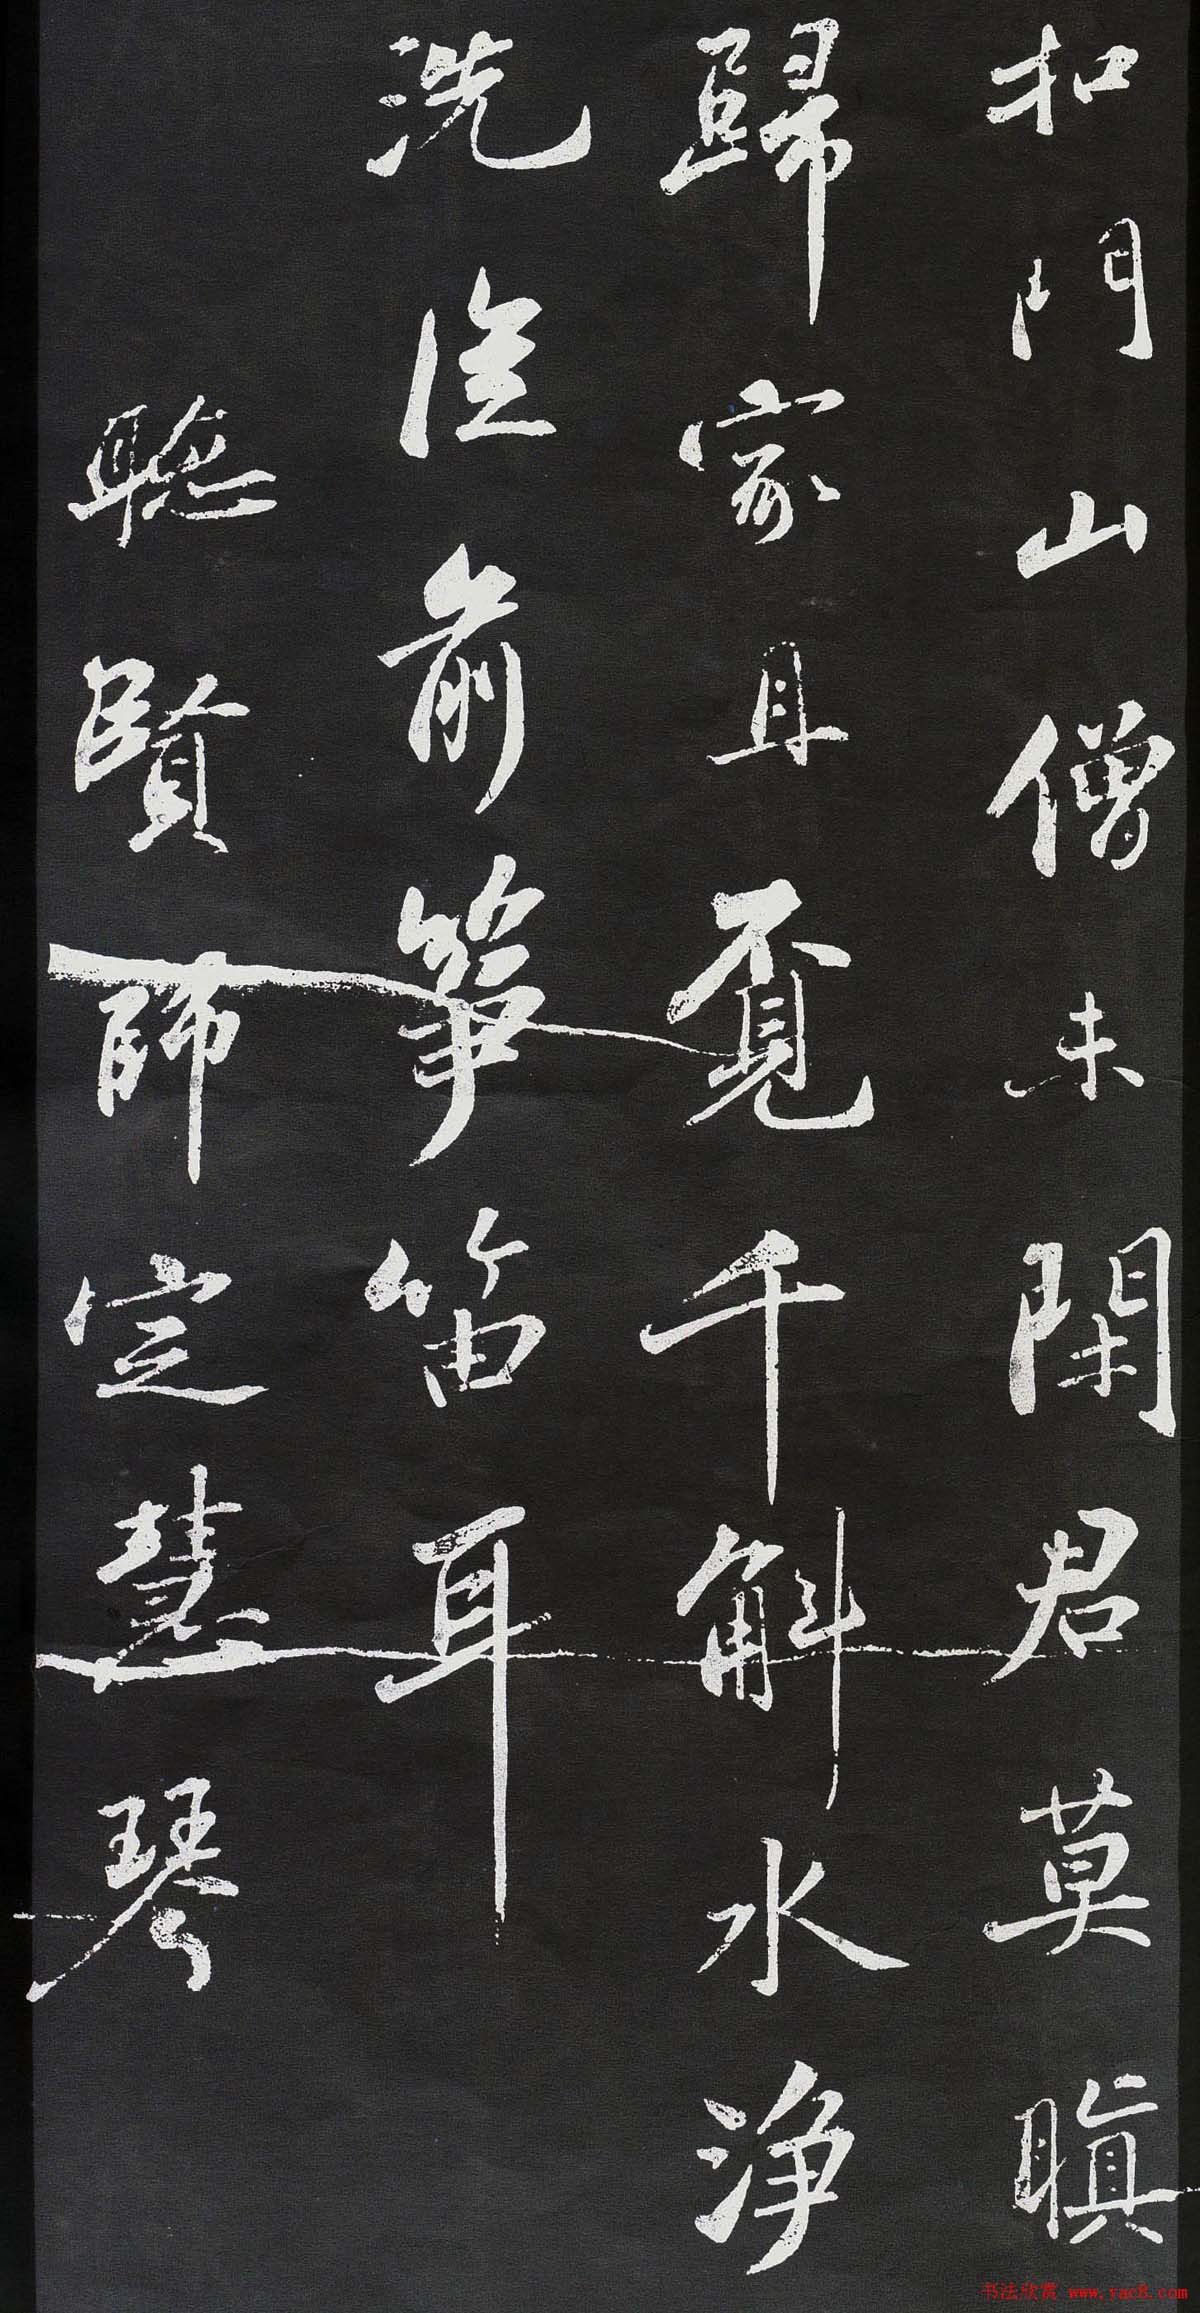 扣門山僧未閑君莫瞋
歸家且覔千斛水淨
洗從前箏笛耳
聽賢師定慧琴
书法欣赏 www.yac8.com